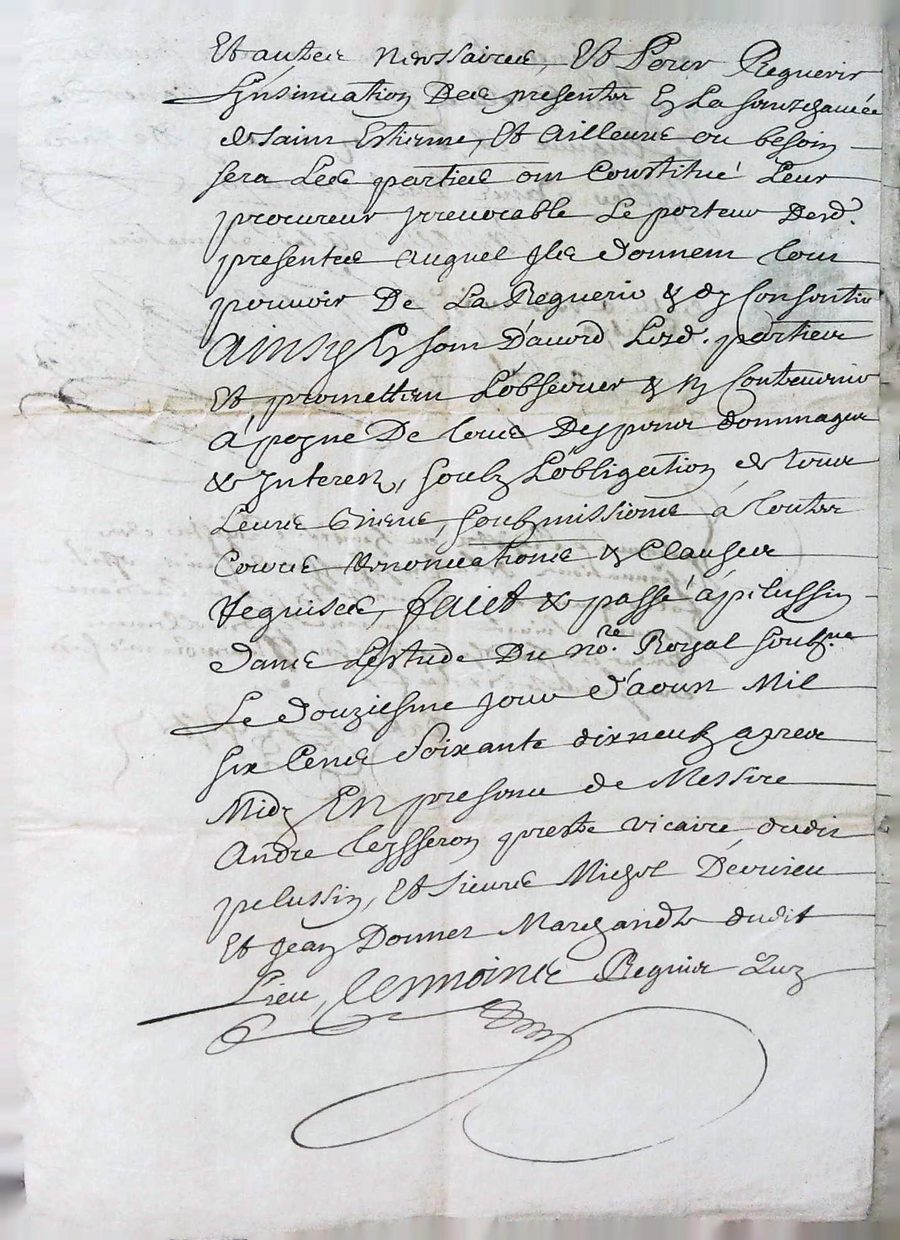 Et autres necessaires, Et Pour Requerir
Linsinuation Des presentes En La senechaucée
de saint Estienne, Et Ailleurs ou besoin
sera Lesd parties ont Constitué Leur
procureur Irrevocable Le porteur Desd.
presentes Auquel Ils donnent tout
pouvoir De La Requerir & dy Consentir
Ainsy En sont D'acord Lesd. parties
Et promettent L'observer & ny Contrevenir
A peyne De tous Despens dommages
& Interest, soubz L'obligation de tous
Leurs biens, soubmissions à toutes
Cours Renonciations & Clauses
Requises, faict & passé à pelussin
dans Lestude Du no.re Royal soubs.ne
Le douziesme jour d'aoust Mil
six Cens soixante dix neufz apres
Midy En presence de Messire
André teysseron prestre vicaire dudit
pelussin, Et sieurs Michel
Et Jean Donnet Marchandz dudit
Lieu, tesmoins Requis